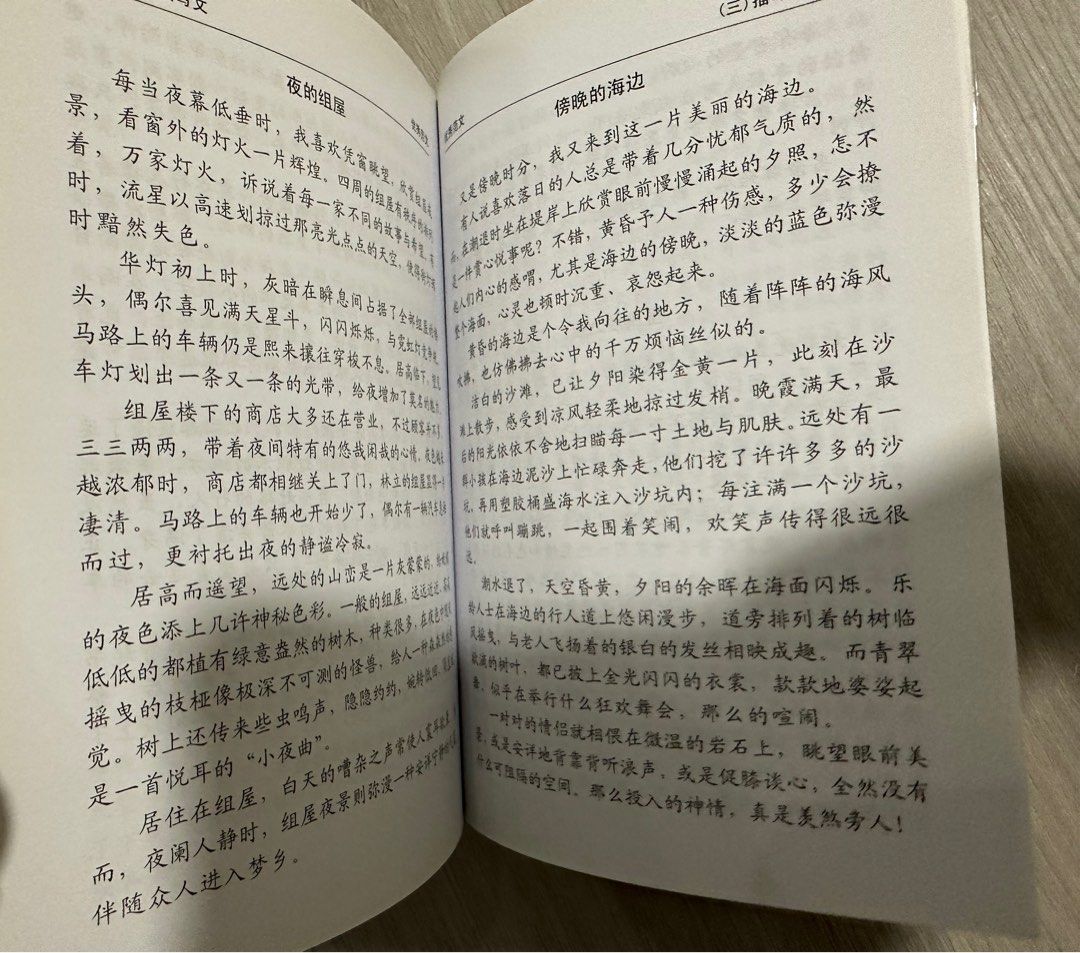 写文
夜的组屋
优秀范文
每当夜幕低垂时，我喜欢凭窗眺望，欣赏组屋夜
景，看窗外的灯火一片辉煌。四周的组屋有秩序地排列
着，万家灯火，诉说着每一家不同的故事与希望。有
时，流星以高速划掠过那亮光点点的天空，使得
时黯然失色。
华灯初上时，灰暗在瞬息间占据了全部组屋的
头，偶尔喜见满天星斗，闪闪烁烁，与霓虹灯竞
马路上的车辆仍是熙来攘往穿梭不息。居高临下，
车灯划出一条又一条的光带，给夜增加了莫名的
组屋楼下的商店大多还在营业，不过顾客并不
三三两两，带着夜间特有的悠哉闲哉的心情。夜色
越浓郁时，商店都相继关上了门，林立的组屋显得
凄清。马路上的车辆也开始少了，偶尔有一辆汽车
而过，更衬托出夜的静谧冷寂。
居高而遥望，远处的山峦是一片灰蒙蒙的，给
的夜色添上几许神秘色彩。一般的组屋，远远近近、高高
低低的都植有绿意盎然的树木，种类很多，在夜色中
摇曳的枝桠像极深不可测的怪兽，给人一种森森然的感
觉。树上还传来些虫鸣声，隐隐约约，婉转低回，
是一首悦耳的“小夜曲”。
居住在组屋，白天的嘈杂之声常使人震耳欲聋，
而，夜阑人静时，组屋夜景则弥漫一种安详宁静的
伴随众人进入梦乡。
（三）描
傍晚的海边
优秀范文
又是傍晚时分，我又来到这一片美丽的海边。
有人说喜欢落日的人总是带着几分忧郁气质的，然
而，在潮退时坐在堤岸上欣赏眼前慢慢涌起的夕照，怎不
是一件赏心悦事呢？不错，黄昏予人一种伤感，多少会撩
起人们内心的感喟，尤其是海边的傍晚，淡淡的蓝色弥漫
整个海面，心灵也顿时沉重、哀怨起来。
黄昏的海边是个令我向往的地方，随着阵阵的海风
吹拂，也仿佛拂去心中的千万烦恼丝似的。
洁白的沙滩，已让夕阳染得金黄一片，此刻在沙
滩上散步，感受到凉风轻柔地掠过发梢。晚霞满天，最
后的阳光依依不舍地扫瞄每一寸土地与肌肤。远处有一
群小孩在海边泥沙上忙碌奔走，他们挖了许许多多的沙
坑，再用塑胶桶盛海水注入沙坑内；每注满一个沙坑，
他们就呼叫蹦跳，一起围着笑闹，欢笑声传得很远很
远。
潮水退了，天空昏黄，夕阳的余晖在海面闪烁。乐
龄人士在海边的行人道上悠闲漫步，道旁排列着的树临
风摇曳，与老人飞扬着的银白的发丝相映成趣。而青翠
欲滴的树叶，都已披上金光闪闪的衣裳，款款地婆娑起
舞，似乎在举行什么狂欢舞会，那么的喧闹。
一对对的情侣就相偎在微温的岩石上，眺望眼前美
景，或是安详地背靠背听浪声，或是促膝谈心，全然没有
什么可阻隔的空间。那么投入的神情，真是羡煞旁人！